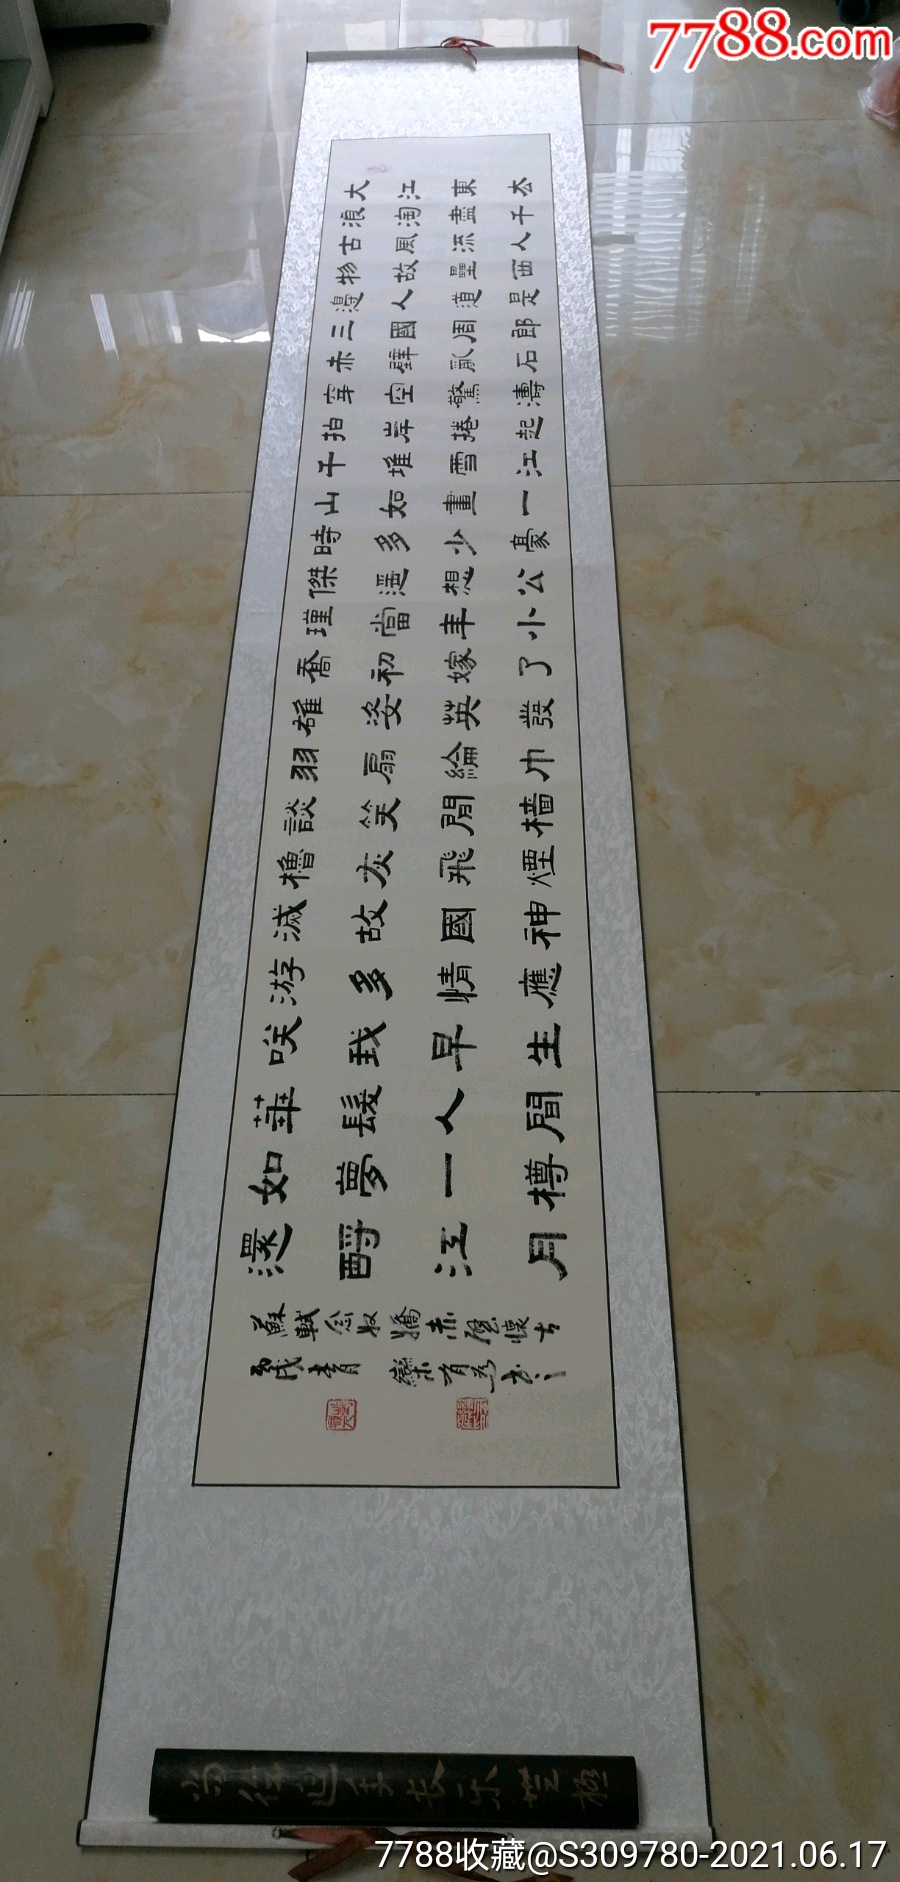 7788.com
大江東去
浪淘盡千
古風流人
物故壘西
邊人道是
三國周郎
赤壁亂石
穿空驚濤
拍岸捲起
千堆雪江
山如畫一
時多少豪
傑遥想公
瑾當年小
喬初嫁了
雄姿英發
羽扇綸巾
談笑間檣
櫓灰飛煙
滅故國神
游多情應
笑我早生
華髮人間
如夢一樽
還酹江月
蘇軾念奴嬌赤壁懷古
丙戌 欒有
延年長乐 極
7788收藏@S309780-2021.06.17